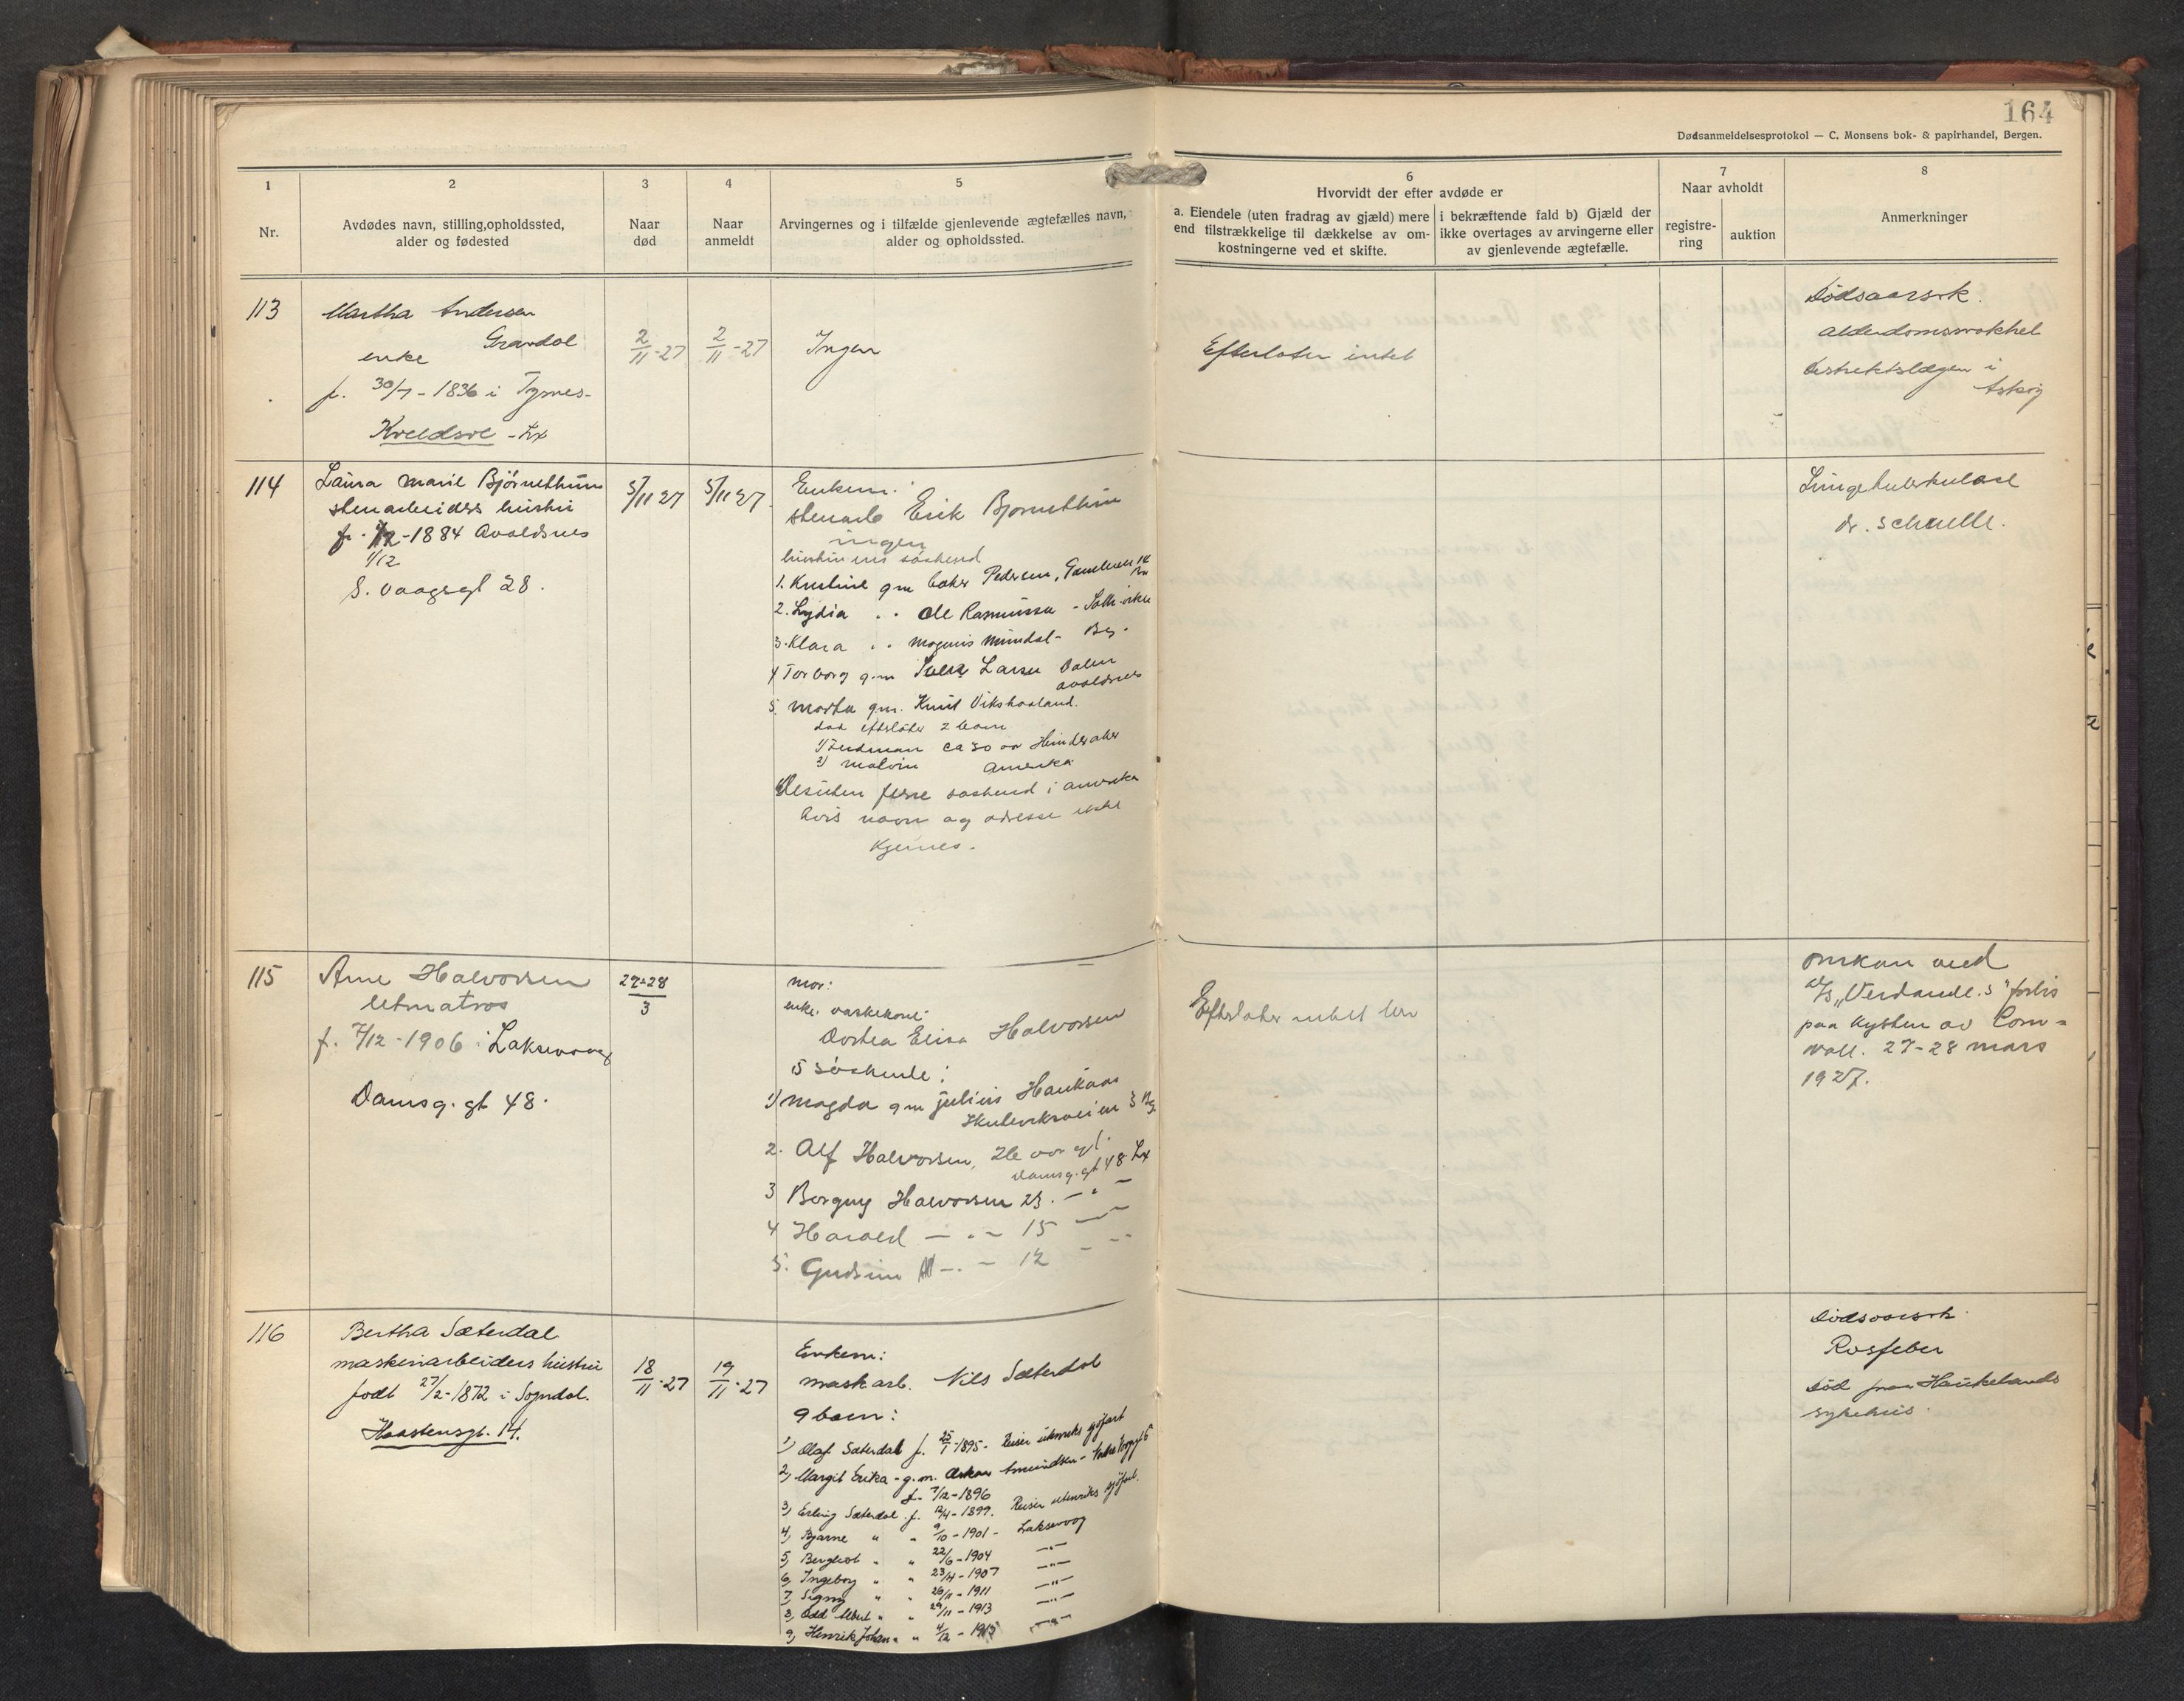 164
Dødsanmeldelsesprotokol — C. Monsens bok- & papirhandel, Bergen.
1
Nr.
2
Avdødes navn, stilling, opholdssted,
alder og fødested
3
Naar
død
4
Naar
anmeldt
5
Arvingernes og i tilfælde gjenlevende ægtefælles navn,
alder og opholdssted.
6
Hvorvidt der efter avdøde er
a. Eiendele (uten fradrag av gjæld) mere
end tilstrækkelige til dækkelse av om-
kostningerne ved et skifte.
i bekræftende fald b) Gjæld der
ikke overtages av arvingerne eller
av gjenlevende ægtefælle.
7
Naar avholdt
registre-
ring
auktion
8
Anmerkninger
113
Martha Andersen
enke
f. 30/7 - 1836 i
- Lx
2/11-27
2/11-27
Ingen
Efterlater intet
Dødsaarsak.
Distriktslægen i
Askøy
114
Laura Marie
stenarbeiders hustru
f. 1/12-1884 Avaldsnes
1/12
S. Vaagsgt 28.
5/11 27
5/11 27
Enkem:
stenarb Erik
ingen
hustruens søskend
1. Kristine gm Pedersen,
2. Lydia " Ole Rasmussen -
3. Klara " Magnus Mundal - Bg.
4 Torborg g.m Larsen
Avaldsnes
5. Marta gm. Knut
død efterlater 2 barn
1) ca 30 aar
2) Malvin Amerika
Desuten flere søskend i Amerika
hvis navn og adresse ikke
kjennes.
Lungetuberkulose
dr. Schnelle.
115
Arne Halvorsen
letmatros
f. 7/12-1906 i Laksevaag
Damsg. gt 48.
27-28
3
mor:
enke. vaskekone
Dortea Elisa Halvorsen
5 søskende:
1) Magda gm Julius Haukaas
3 Bg.
2. Alf Halvorsen, 26 aar gl.
Damsg. gt 48 Lx
3 Borgny Halvorsen 23. - " -
4 Harald — " — 15 — " —
5. Gudrun — " — 12 - " -
Efterlater intet
Omkom ved
forlis
paa kysten av Corn=
wall. 27-28 mars
1927.
116
Bertha Sæterdal
maskinarbeiders hustru
født 27/2-1872 i Sogndal.
Haastensgt. 14.
18/11-27
19/11-27
Enkem:
maskarb. Nils Sæterdal
9 barn:
1) Olaf Sæterdal f. 25/1-1895 - Reiser utenriks sjøfart
2) Margit Erika - g.m. Oskar Amundsen -
f. 7/12-1896
3) Erling Sæterdal f. 12/4-1899. Reiser utenriks sjøfart.
4) Bjarne " " 9/10-1901 - Laksevaag
5) Bergliot " " 22/6-1904 —"—
6) Ingeborg " " 23/4-1907 —"—
7) Signy " " 26/11-1911 —"—
8) Odd " " 29/11-1913 —"—
9) Henrik Johan " " 4/12-1915 —"—
Dødsaarsak
Rosfeber
død paa Haukelands
sykehus.